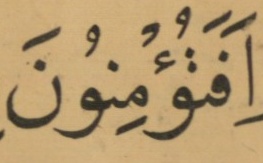 اَفَتُؤْمِنُونَ